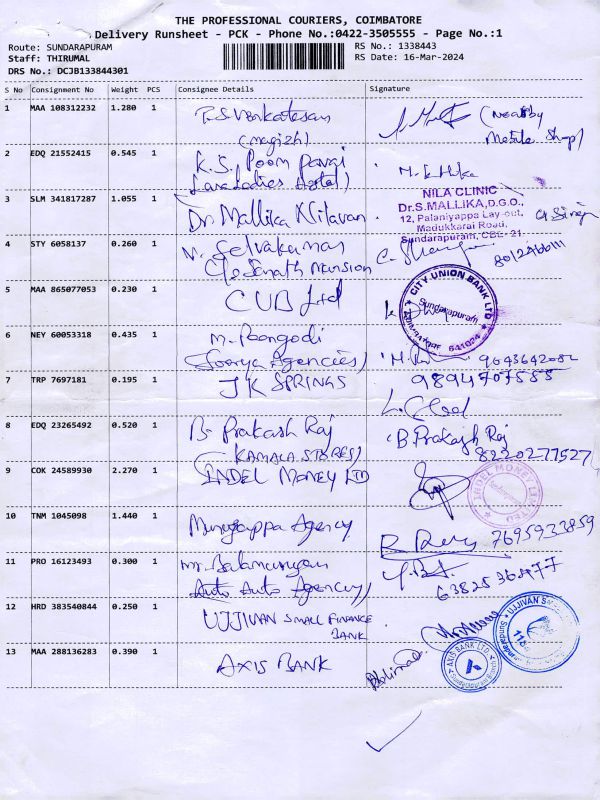 THE PROFESSIONAL COURIERS, COIMBATORE
Delivery Runsheet - PCK - Phone No.:0422-3505555 - Page No.:1
Route: SUNDARAPURAM
Staff: THIRUMAL
DRS No.: DCJB133844301
RS No.: 1338443
RS Date: 16-Mar-2024
S No Consignment No Weight PCS Consignee Details Signature
1 MAA 108312232 1.280 1 (nearby
Mobile Shop)
2 EDQ 21552415 0.545 1 K.S. Poom
3 SLM 341817287 1.055 1 Dr. Mallika Nilavan
NILA CLINIC
Dr.S.MALLIKA,D.G.O.,
12, Palaniyappa Lay-out,
Madukkarai Road,
Sundarapuram, CBE- 21.
4 STY 6058137 0.260 1 Selvakumar
Mansion
5 MAA 865077053 0.230 1 CUB Ltd
CITY UNION BANK LTD
Sundarapuram
641024
6 NEY 60053318 0.435 1 M. Poongodi
(Soorya Agencies)
7 TRP 7697181 0.195 1 JK SPRINGS 9894707555
8 EDQ 23265492 0.520 1 B. Prakash Raj B Prakash Raj
(KAMALA STORES) 8220277527
9 COK 24589930 2.270 1 INDEL MONEY LTD
INDEL MONEY LIMITED
10 TNM 1045098 1.440 1 Murugappa Agency 7695933859
11 PRO 16123493 0.300 1 Mr. Balamurugan
Auto Agency) 6382536477
12 HRD 383540844 0.250 1 UJJIVAN SMALL FINANCE
BANK
UJJIVAN
13 MAA 288136283 0.390 1 AXIS BANK
AXIS BANK LTD